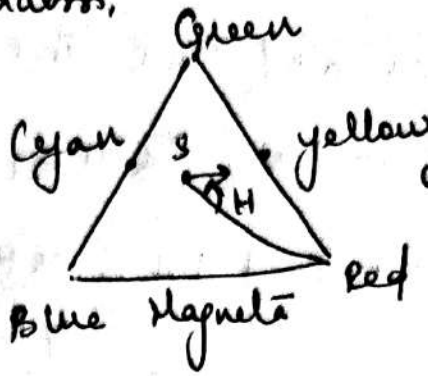 Green
Cyan
yellow
S
H
Blue Magneta Red